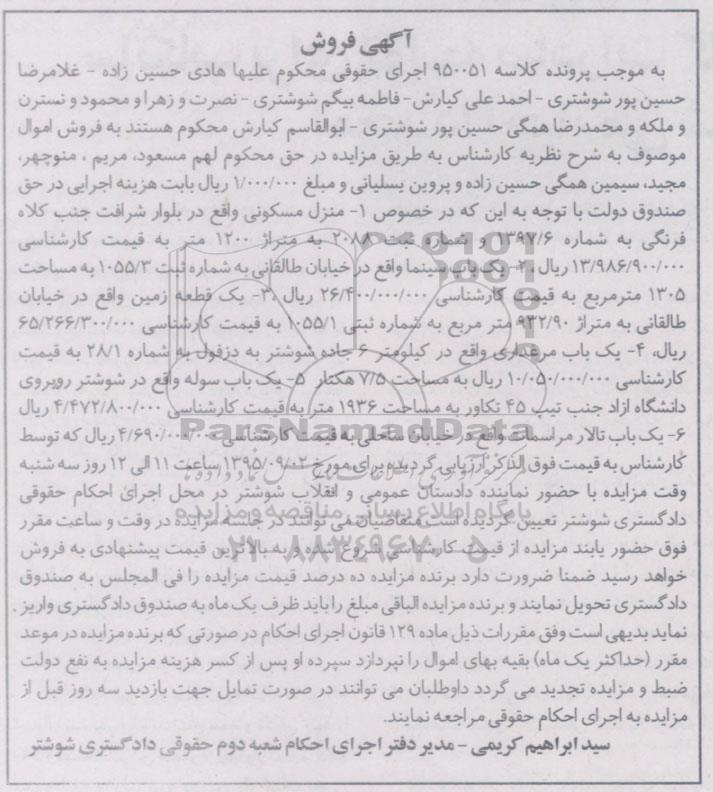 آگهی فروش
به موجب پرونده کلاسه ۹۵۰۰۵۱ اجرای حقوقی محکوم علیها هادی حسین زاده - غلامرضا
حسین پور شوشتری - احمد علی کیارش - فاطمه بیگم شوشتری - نصرت و زهرا و محمود و نسترن
و ملکه و محمدرضا همگی حسین پور شوشتری - ابوالقاسم کیارش محکوم هستند به فروش اموال
موصوف به شرح نظریه کارشناس به طریق مزایده در حق محکوم لهم مسعود، مریم ، منوچهر،
مجید، سیمین همگی حسین زاده و پروین یسلیانی و مبلغ ۱/۰۰۰/۰۰۰ ریال بابت هزینه اجرایی در حق
صندوق دولت با توجه به این که در خصوص ۱- منزل مسکونی واقع در بلوار شرافت جنب کلاه
فرنگی به شماره ۱۳۹۷/۶ و شماره ثبت ۲۰۸۸ به متراژ ۱۲۰۰ متر به قیمت کارشناسی
۱۳/۹۸۶/۹۰۰/۰۰۰ ریال ،۲- یک باب سینما واقع در خیابان طالقانی به شماره ثبت ۱۰۵۵/۳ به مساحت
۱۳۰۵ مترمربع به قیمت کارشناسی ۲۶/۴۰۰/۰۰۰/۰۰۰ ریال ،۳- یک قطعه زمین واقع در خیابان
طالقانی به متراژ ۹۳۲/۹۰ متر مربع به شماره ثبتی ۱۰۵۵/۱ به قیمت کارشناسی ۶۵/۲۶۶/۳۰۰/۰۰۰
ریال، ۴- یک باب مرغداری واقع در کیلومتر ۶ جاده شوشتر به دزفول به شماره ۲۸/۱ به قیمت
کارشناسی ۱۰/۰۵۰/۰۰۰/۰۰۰ ریال به مساحت ۷/۵ هکتار ۵- یک باب سوله واقع در شوشتر روبروی
دانشگاه ازاد جنب تیپ ۴۵ تکاور به مساحت ۱۹۳۶ متر به قیمت کارشناسی ۴/۴۷۲/۸۰۰/۰۰۰ ریال
ParsNamadData
۶- یک باب تالار مراسمات واقع در خیابان ساحلی به قیمت کارشناسی ۴/۶۹۰/۰۰۰/۰۰۰ ریال که توسط
کارشناس به قیمت فوق الذکر ارزیابی گردیده برای مورخ ۱۳۹۵/۰۹/۰۲ ساعت ۱۱ الی ۱۲ روز سه شنبه
وقت مزایده با حضور نماینده دادستان عمومی و انقلاب شوشتر در محل اجرای احکام حقوقی
پایگاه اطلاع رسانی مناقصه و مزایده
دادگستری شوشتر تعیین گردیده است متقاضیان می توانند در جلسه مزایده در وقت و ساعت مقرر
فوق حضور یابند مزایده از قیمت کارشناسی شروع شده و به بالاترین قیمت پیشنهادی به فروش
۰۲۱-۸۸۳۴۹۶۷۰-۵
خواهد رسید ضمنا ضرورت دارد برنده مزایده ده درصد قیمت مزایده را فی المجلس به صندوق
دادگستری تحویل نمایند و برنده مزایده الباقی مبلغ را باید ظرف یک ماه به صندوق دادگستری واریز .
نماید بدیهی است وفق مقررات ذیل ماده ۱۲۹ قانون اجرای احکام در صورتی که برنده مزایده در موعد
مقرر (حداکثر یک ماه) بقیه بهای اموال را نپردازد سپرده او پس از کسر هزینه مزایده به نفع دولت
ضبط و مزایده تجدید می گردد داوطلبان می توانند در صورت تمایل جهت بازدید سه روز قبل از
مزایده به اجرای احکام حقوقی مراجعه نمایند.
سید ابراهیم کریمی - مدیر دفتر اجرای احکام شعبه دوم حقوقی دادگستری شوشتر